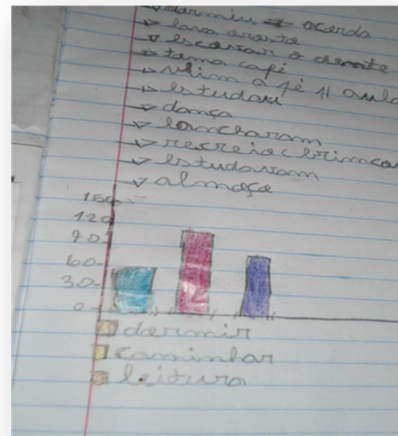 dormiu acorda
lava orosto
escovar o dente
toma café
vum a fé 11 aula
Estudau
dança
lancharam
recreio brincar
Estudavam
almoça
150
120
90
60
30
0
dermir
caminhar
leitura